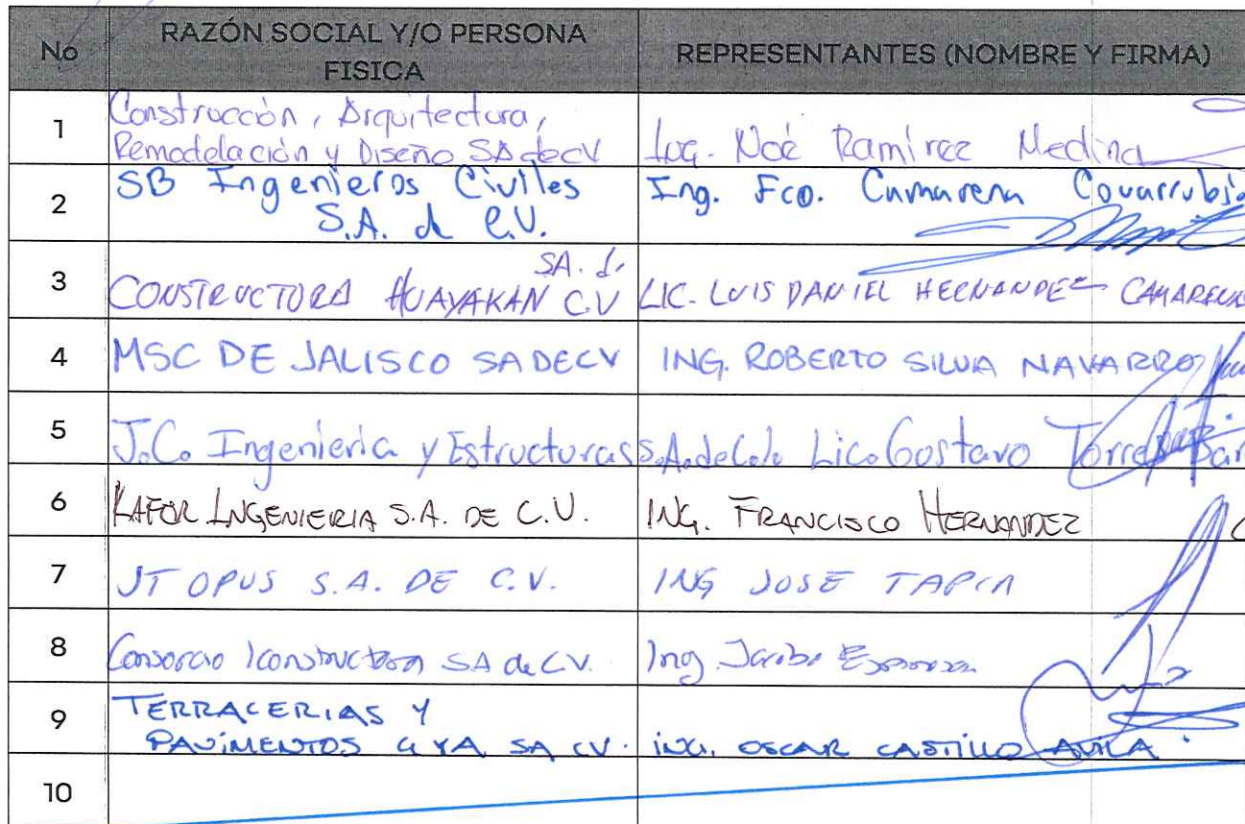 No
RAZÓN SOCIAL Y/O PERSONA
FISICA
REPRESENTANTES (NOMBRE Y FIRMA)
1
Construcción, Arquitectura,
Remodelación y Diseño SA de CV
Ing. Noé Ramírez Medina
2
SB Ingenieros Civiles
S.A. de C.V.
Ing. Fco. Camarena Covarrubia
3
SA. de
CONSTRUCTORA HUAYAKAN C.V
LIC. LUIS DANIEL HERNANDEZ CAMARENA
4
MSC DE JALISCO SA DE CV
ING. ROBERTO SILVA NAVARRO
5
J.C. Ingenieria y Estructuras S.A. de C.V.
Lic. Gustavo Torres
6
KAFOR INGENIERIA S.A. DE C.V.
ING. FRANCISCO HERNANDEZ
7
JT OPUS S.A. DE C.V.
ING JOSE TAPIA
8
Consorcio Iconstructora SA de CV.
Ing. Jacobo
9
TERRACERIAS Y
PAVIMENTOS GYA SA CV.
ING. OSCAR CASTILLO AVILA
10